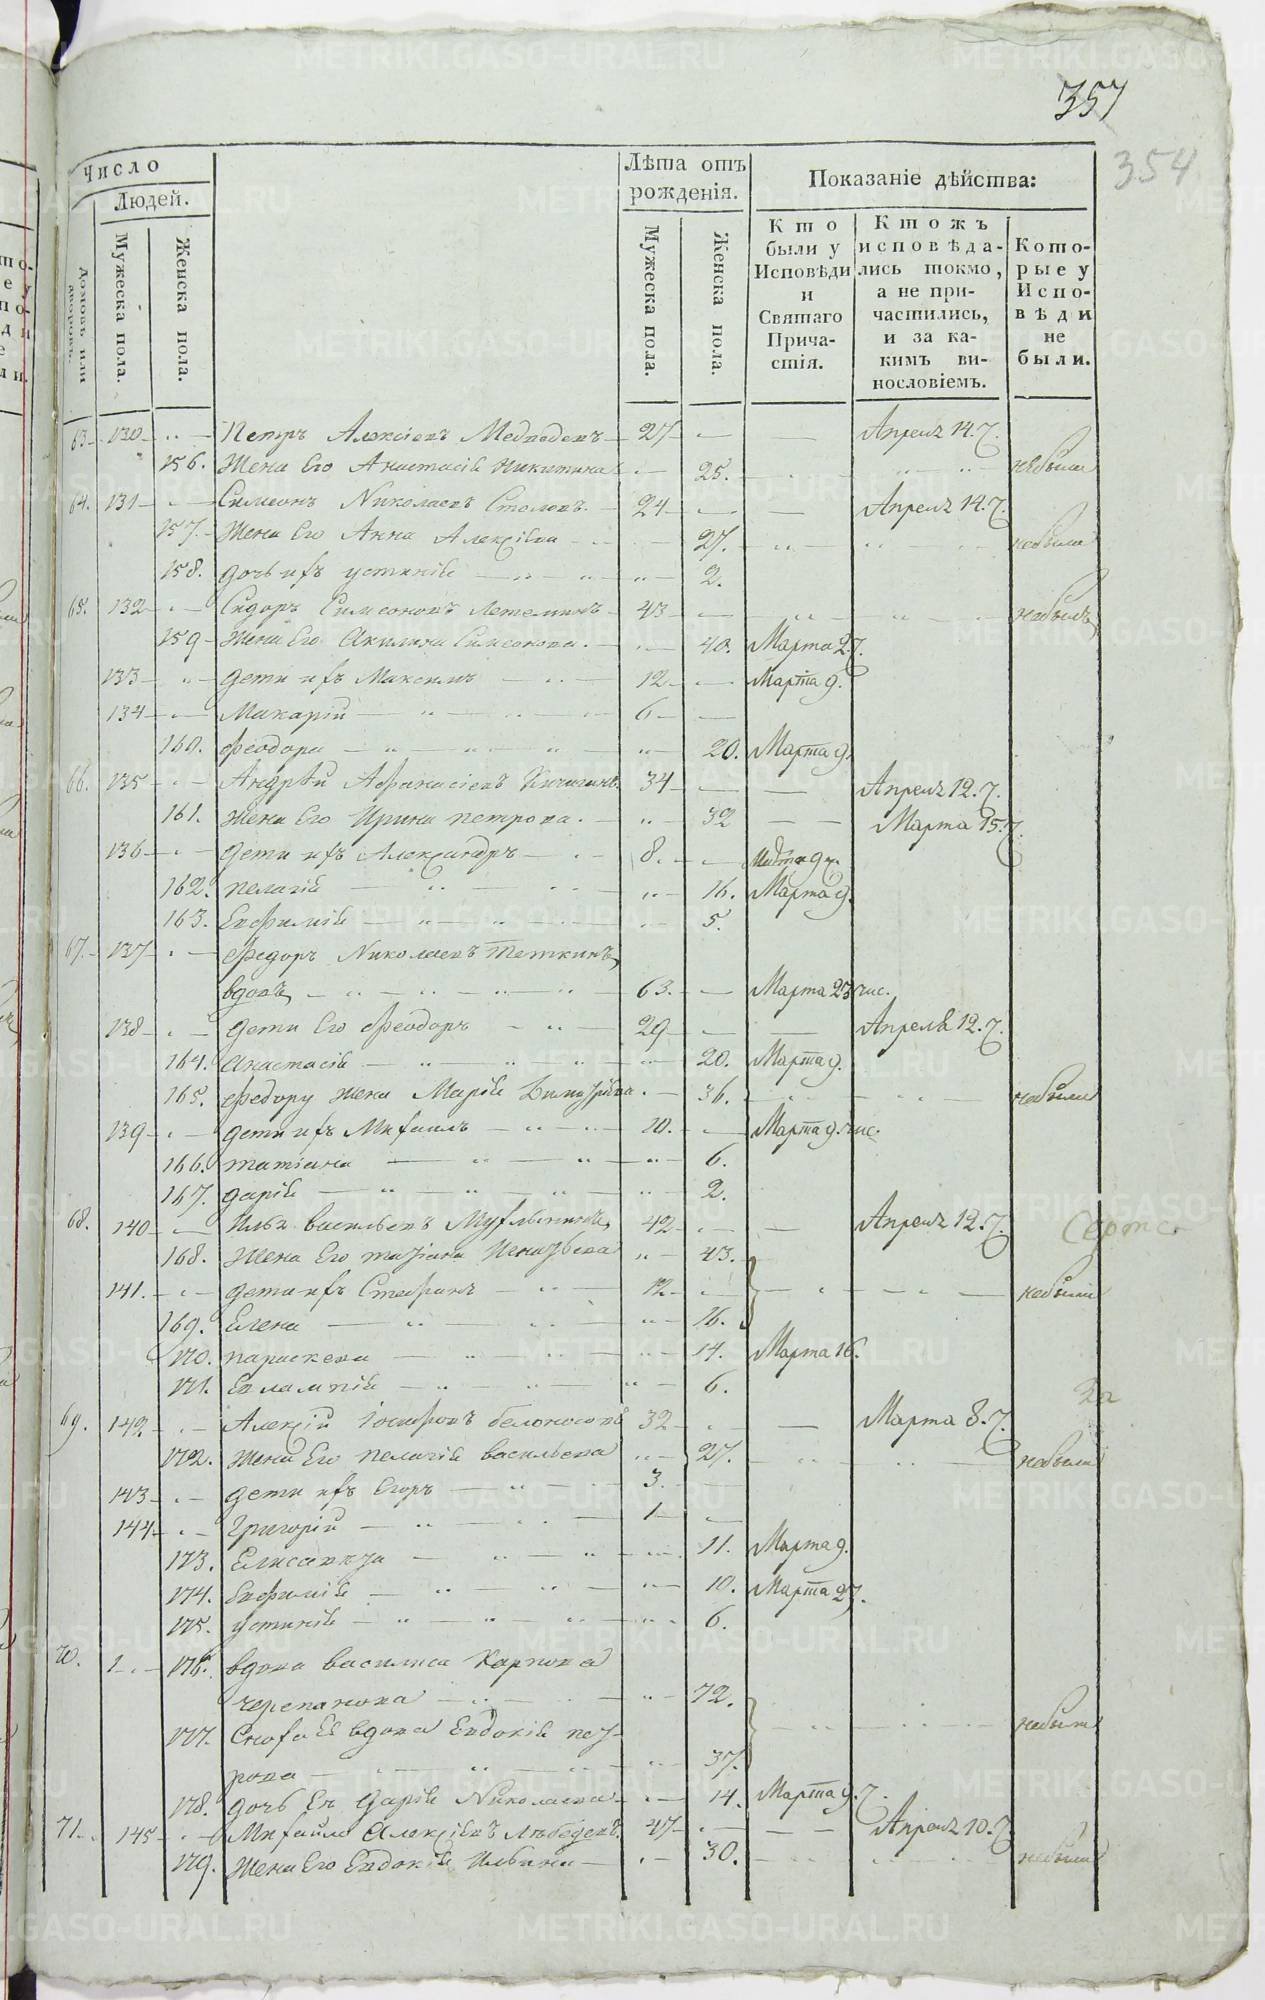 357
354
Число
Людей.
Домовъ или дворовъ.
Мужеска пола.
Женска пола.
Лѣта отъ рожденія.
Мужеска пола.
Женска пола.
Показаніе дѣйства:
Кто были у Исповѣди и Святаго Причастія.
Ктожъ исповѣдались токмо, а не причастились, и за какимъ винословіемъ.
Которые у Исповѣди не были.
63 130 Петръ Алексіевъ Медведевъ 27 Апреля 14.
156. Жена Его Анастасія Никитина 25. небыла
64. 131 Симеонъ Николаевъ 24 Апреля 14.
157. Жена Его Анна Алексіева 27. небыла
158. дочь ихъ устинія 2.
65. 132 Сидоръ Симеоновъ 43 небылъ
159 Жена Его Акилина Симеонова. 40. Марта 27.
133 дети ихъ Максимъ 12 Марта 9.
134 Макарій 6
160. Феодора 20. Марта 9.
66. 135 Андрей Афанасіевъ Кичигинъ 34 Апреля 12.
161. Жена Его Ирина петрова. 32 Марта 15.
136 дети ихъ Александръ 8. Марта 9
162. пелагія 16. Марта 9.
163. Евфимія 5.
67. 137 Федоръ Николаевъ Теткинъ
вдовъ 63. Марта 23 чис.
138 дети Его Феодоръ 29 Апреля 12.
164. Анастасія 20. Марта 9.
165. Федору жена Марія 36. небыла
139 дети ихъ Михаилъ 10. Марта 9. чис.
166. татіана 6.
167. дарія 2.
68. 140 Илья васильевъ 42 Апреля 12.
168. Жена Его татіана 43.
141. дети ихъ Стефанъ 12. небыли
169. Елена 16.
170. параскева 14. Марта 16.
171. Евлампія 6.
69. 142. Алексій Іосифовъ белоносовъ 32 Марта 8.
172. Жена Его пелагія васильева 27. небыла
143 дети ихъ Егоръ 3.
144 Григорій 1
173. Елисавета 11. Марта 9.
174. Евфимія 10. Марта 27.
175. устинія 6.
70. 176. вдова василиса Карпова
черепанова 72.
177. Сноха Ея вдова Евдокія пет-
рова 37. небыли
178. дочь Ея Дарія Николаева 14. Марта 9.
71. 145 Михайло Алексіевъ Лебедевъ. 47 Апреля 10.
179. Жена Его Евдокія Ильина 30. небыла
METRIKI.GASO-URAL.RU